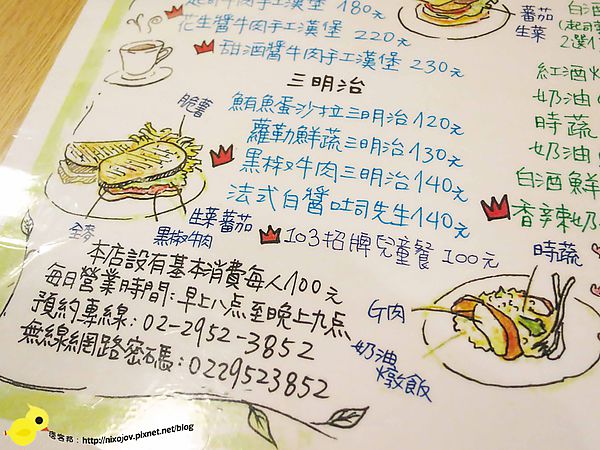 起司牛肉手工漢堡 180元
花生醬牛肉手工漢堡 220元
甜酒醬牛肉手工漢堡 230元
三明治
脆薯
鮪魚蛋沙拉三明治 120元
蘿勒鮮蔬三明治 130元
黑椒牛肉三明治 140元
法式白醬吐司先生 140元
全麥
黑椒牛肉
生菜蕃茄
103招牌兒童餐 100元
本店設有基本消費每人100元
每日營業時間:早上八点至晚上九点
預約專線:02-2952-3852
無線網路密碼:0229523852
蕃茄
生菜
白酒
2選1
紅酒
奶油
時蔬
奶油
白酒鮮
香辣奶
時蔬
G肉
奶油
燉飯
痞客邦:http://nixojov.pixnet.net/blog